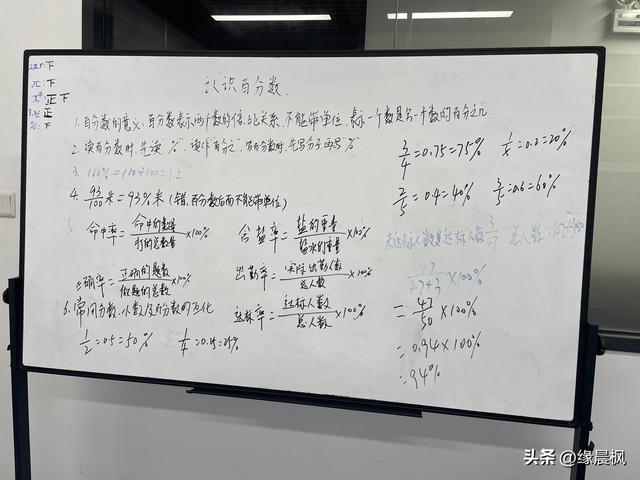 认识百分数.
下
π: 下
正下
正
%: 下
1. 百分数的意义: 百分数表示两个数的倍比关系, 不能带单位, 表示一个数是另一个数的百分之几
2. 读百分数时, 先读"%", 读作"百分之", 写百分数时, 先写分子再写"%"
3. 120%=120÷100=1.2
4. 93/100米=93%米 (错, 百分数后面不能带单位)
5.
命中率=命中的数量/打的总数量×100%
含盐率=盐的重量/盐水的重量×100%
正确率=正确的题数/做题的总数×100%
出勤率=实际出勤人数/总人数×100%
6. 常用分数、小数及百分数的互化
达标率=达标人数/总人数×100%
1/2=0.5=50%
1/4=0.25=25%
3/4=0.75=75%
1/5=0.2=20%
2/5=0.4=40%
3/5=0.6=60%
未达标人数是达标人数3/47
47/47+3×100%
=47/50×100%
=0.94×100%
=94%
头条 @缘晨枫